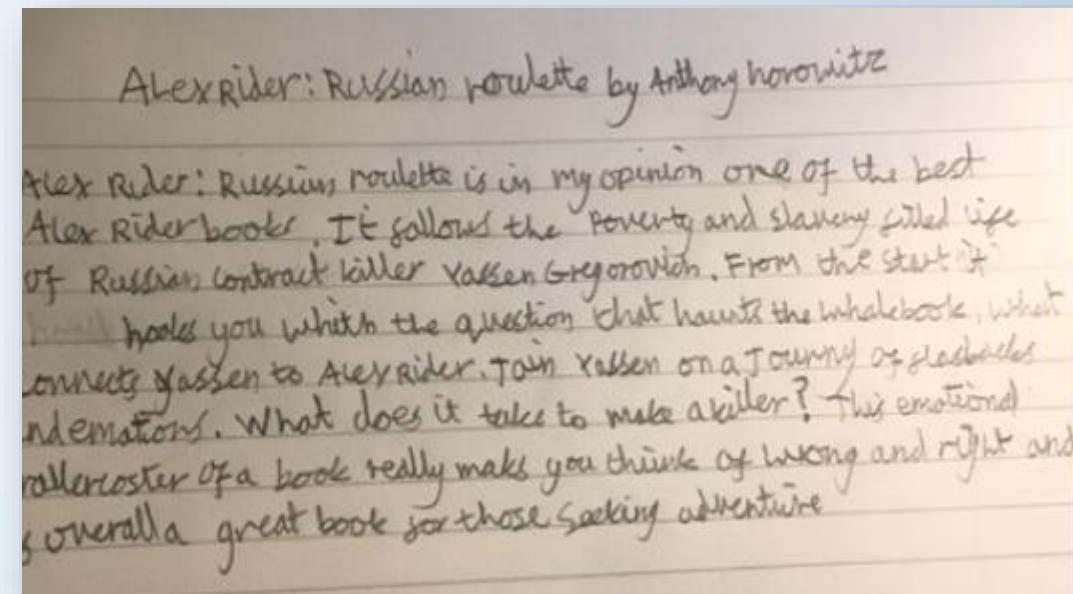 Alex Rider: Russian roulette by Anthony horowitz
Alex Rider: Russian roulette is in my opinion one of the best
Alex Rider books. It follows the Poverty and slavery filled life
of Russian contract killer Yassen Gregorovich. From the start it
hooks you whith the question that haunts the whole book, what
connects Yassen to Alex Rider. Join Yassen on a Journy of
ndemotions. What does it takes to make a killer? This emotional
rollercoster of a book really maks you think of wrong and right and
s overall a great book for those seeking adventure